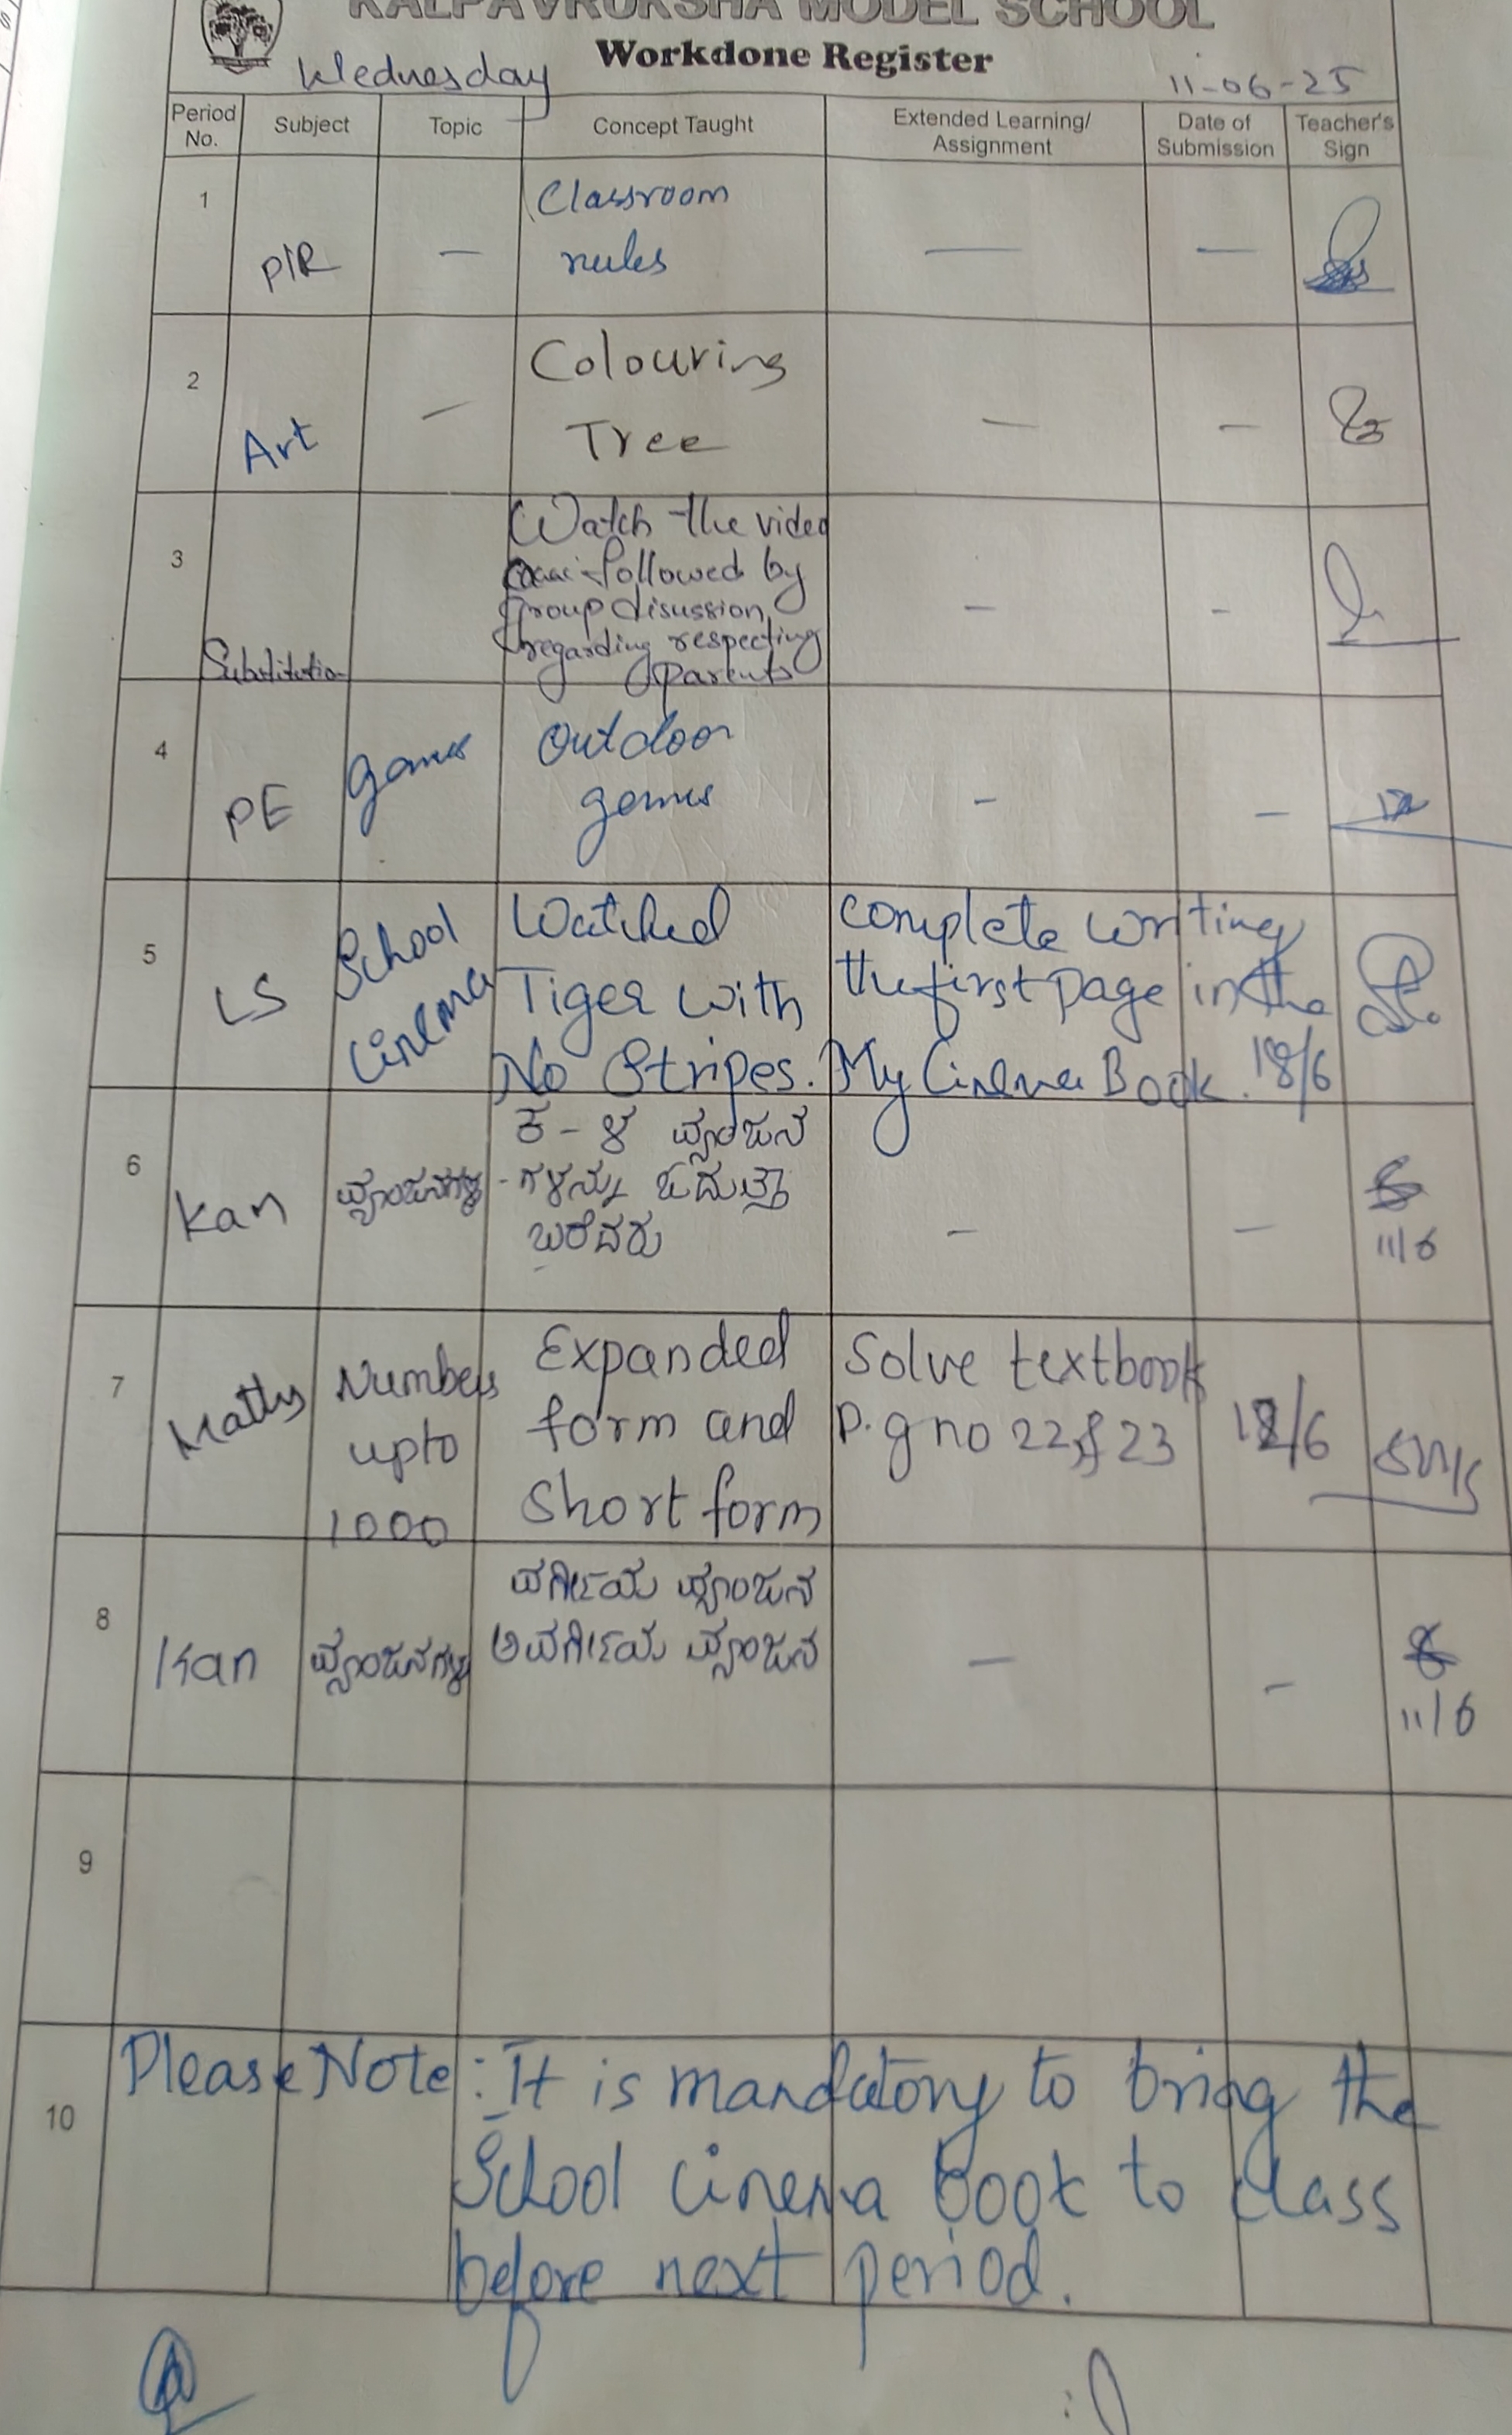 KALPAVRUKSHA MODEL SCHOOL
Workdone Register
Wednesday
11-06-25
Period No.
Subject
Topic
Concept Taught
Extended Learning/ Assignment
Date of Submission
Teacher's Sign
1
PIR
—
Classroom
rules
—
—
2
Art
—
Colouring
Tree
—
—
3
Substitution
Watch the video
followed by
group disussion
regarding respecting
parents
-
-
4
PE
games
Outdoor
games
-
-
5
LS
School
Cinema
Watched
Tiger with
No Stripes.
Complete writing
the first page in the
My Cinema Book.
18/6
6
Kan
ವ್ಯಂಜನಗಳು
ಕ - ಳ ವ್ಯಂಜನ
-ಗಳನ್ನು ಓದುತ್ತಾ
ಬರೆದರು
-
-
11/6
7
Maths
Numbers
upto
1000
Expanded
form and
Short form
Solve textbook
P.g no 22 & 23
12/6
8
Kan
ವ್ಯಂಜನಗಳು
ವರ್ಗೀಯ ವ್ಯಂಜನ
ಅವರ್ಗೀಯ ವ್ಯಂಜನ
-
-
11/6
9
10
Please Note: It is mandatory to bring the
School Cinema Book to class
before next period.